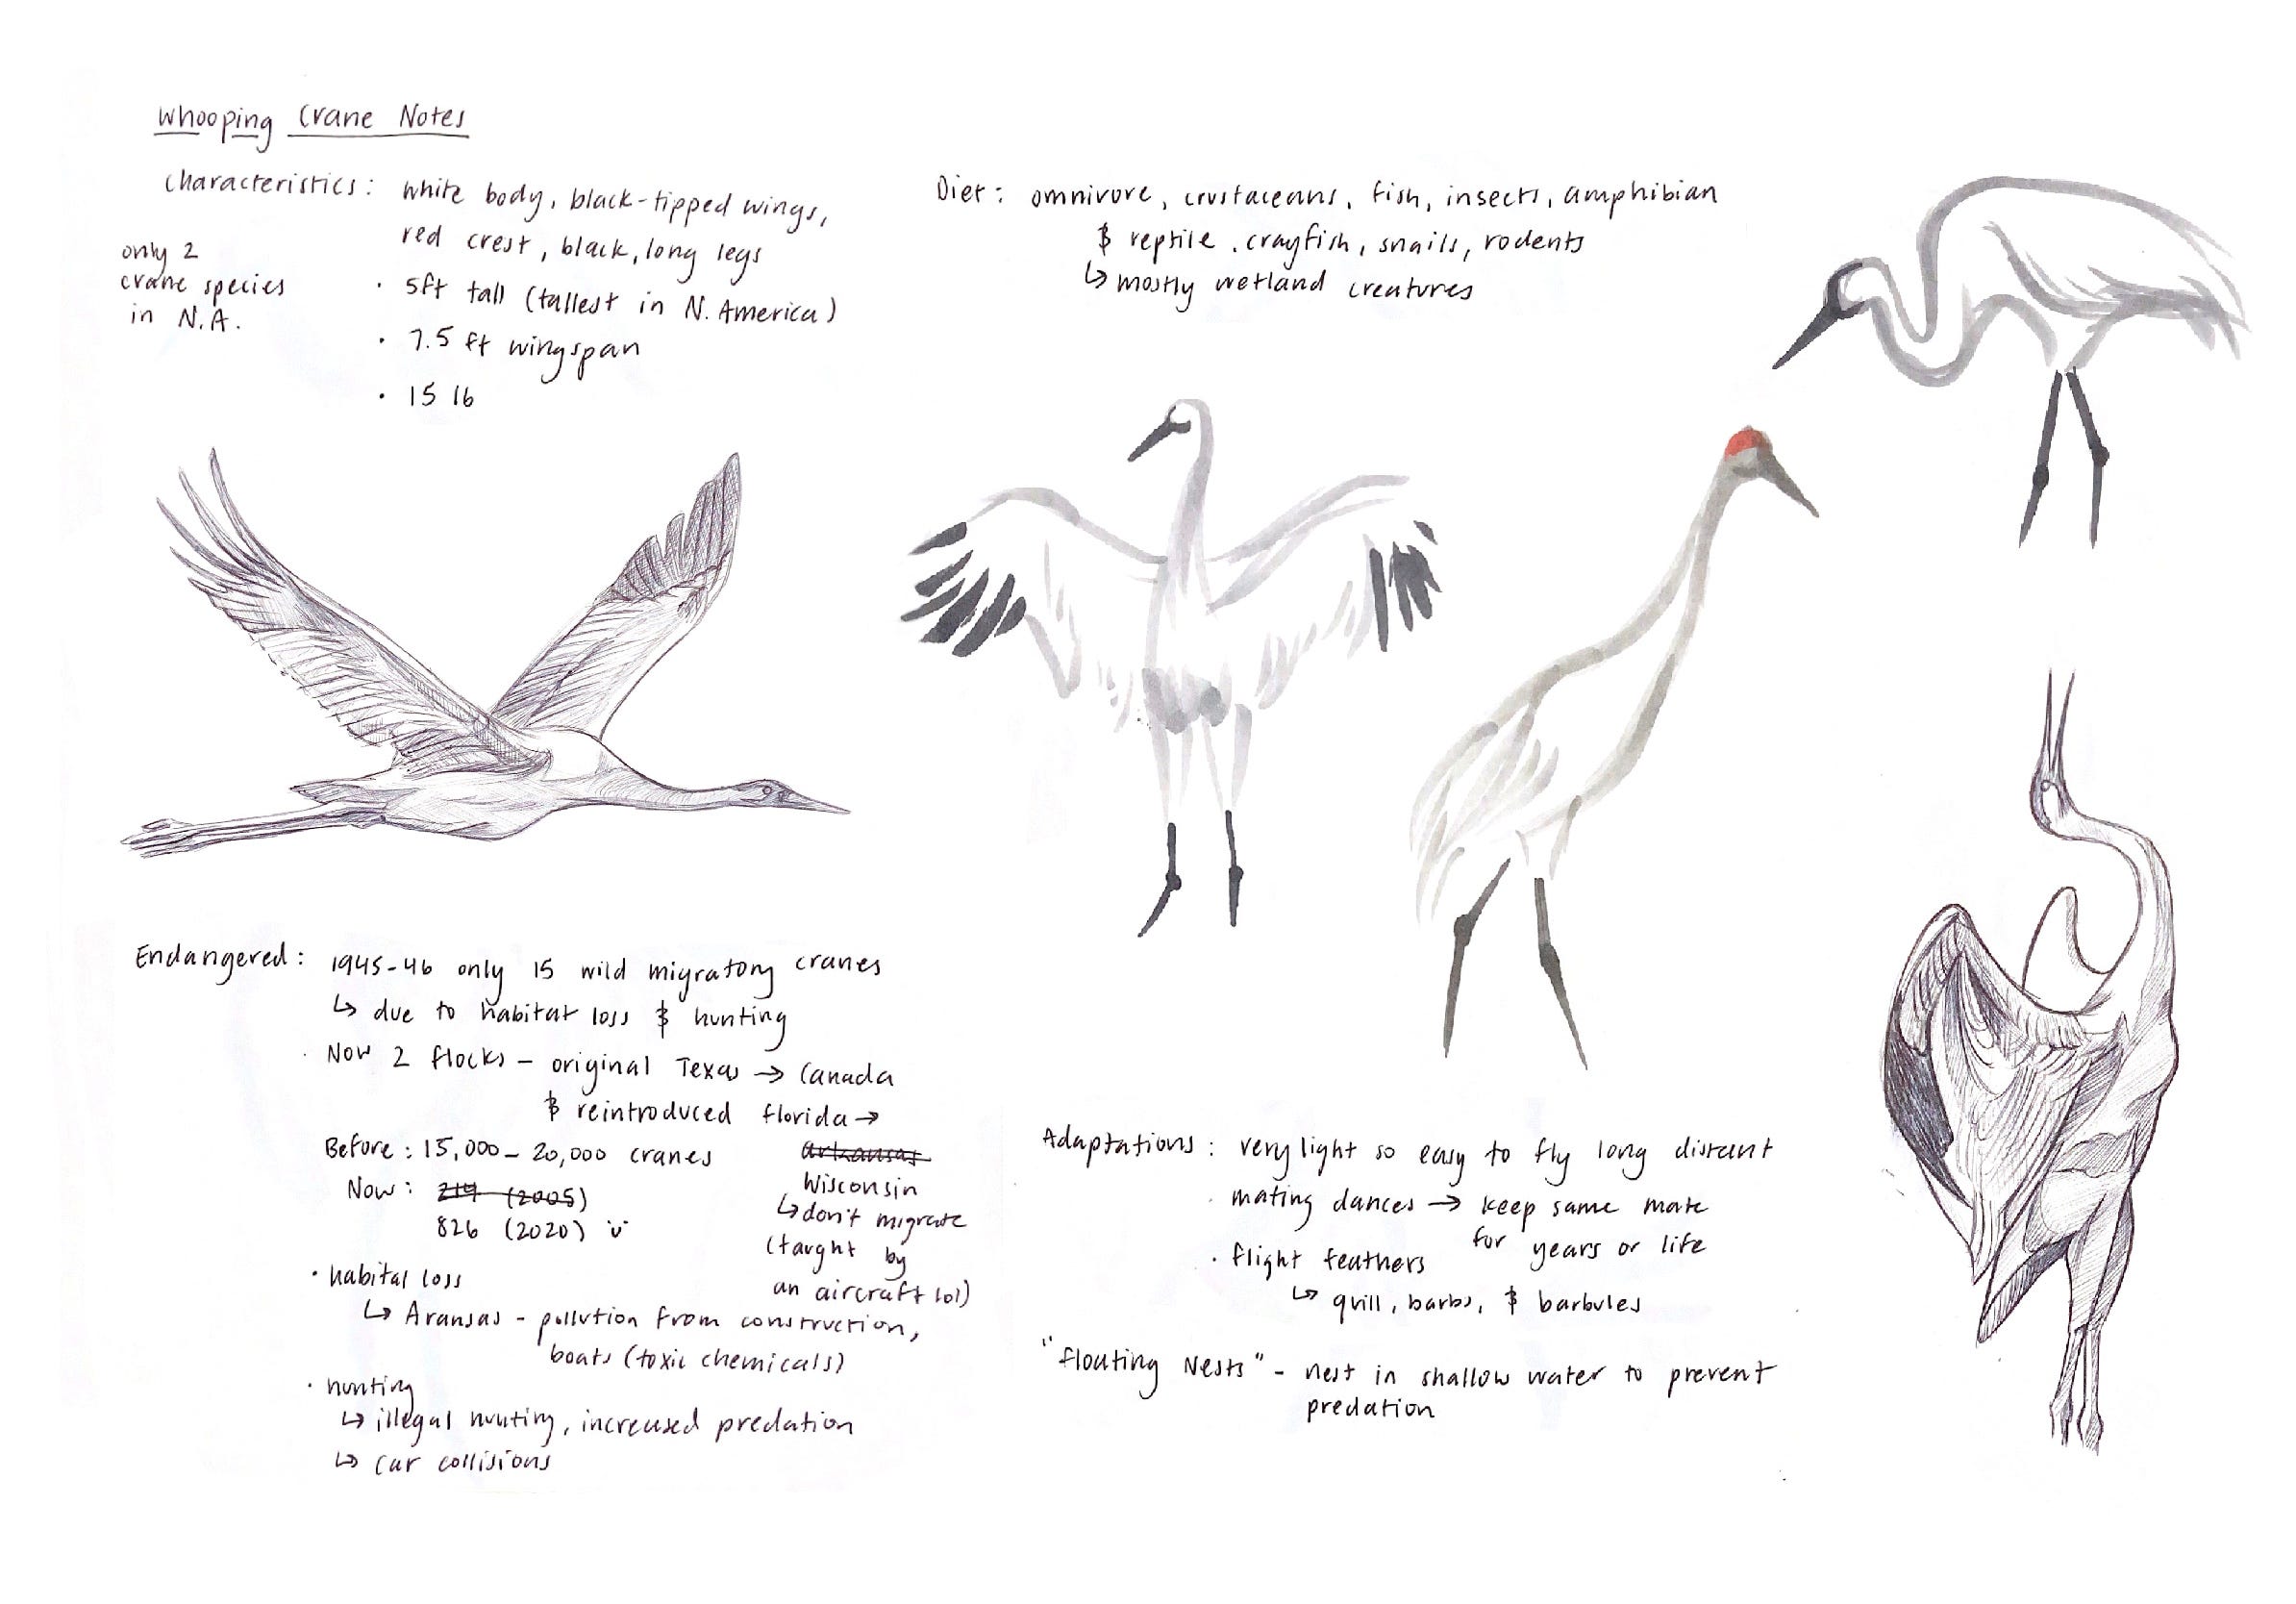 Whooping Crane Notes
Characteristics: white body, black-tipped wings,
red crest, black, long legs
· 5ft tall (tallest in N. America)
· 7.5 ft wingspan
· 15 lb
only 2
crane species
in N.A.
Diet: omnivore, crustaceans, fish, insects, amphibian
& reptile, crayfish, snails, rodents
↳ mostly wetland creatures
Endangered: 1945-46 only 15 wild migratory cranes
↳ due to habitat loss & hunting
· Now 2 flocks – original Texas → Canada
& reintroduced Florida →
arkansas
Wisconsin
↳ don't migrate
(taught by
an aircraft lol)
Before: 15,000 – 20,000 cranes
Now: 219 (2005)
826 (2020) ü
· habital loss
↳ Aransas – pollution from construction,
boats (toxic chemicals)
· hunting
↳ illegal hunting, increased predation
↳ car collisions
Adaptations: very light so easy to fly long distant
· mating dances → keep same mate
for years or life
· flight feathers
↳ quill, barbs, & barbules
"floating Nests" – nest in shallow water to prevent
predation